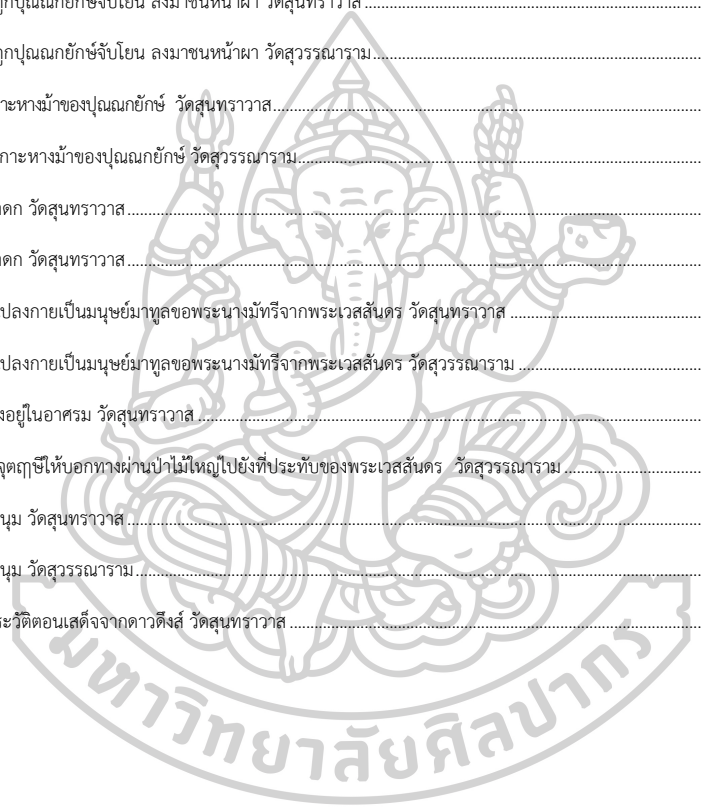 ถูกปุณณกยักษ์จับโยน ลงมาชนหน้าผา วัดสุนทราวาส
ถูกปุณณกยักษ์จับโยน ลงมาชนหน้าผา วัดสุวรรณาราม
าะหางม้าของปุณณกยักษ์ วัดสุนทราวาส
กาะหางม้าของปุณณกยักษ์ วัดสุวรรณาราม
าดก วัดสุนทราวาส
าดก วัดสุนทราวาส
ปลงกายเป็นมนุษย์มาทูลขอพระนางมัทรีจากพระเวสสันดร วัดสุนทราวาส
ปลงกายเป็นมนุษย์มาทูลขอพระนางมัทรีจากพระเวสสันดร วัดสุวรรณาราม
งอยู่ในอาศรม วัดสุนทราวาส
จุตฤๅษีให้บอกทางผ่านป่าไม้ใหญ่ไปยังที่ประทับของพระเวสสันดร วัดสุวรรณาราม
นุม วัดสุนทราวาส
นุม วัดสุวรรณาราม
ระวัติตอนเสด็จจากดาวดึงส์ วัดสุนทราวาส
มหาวิทยาลัยศิลปากร